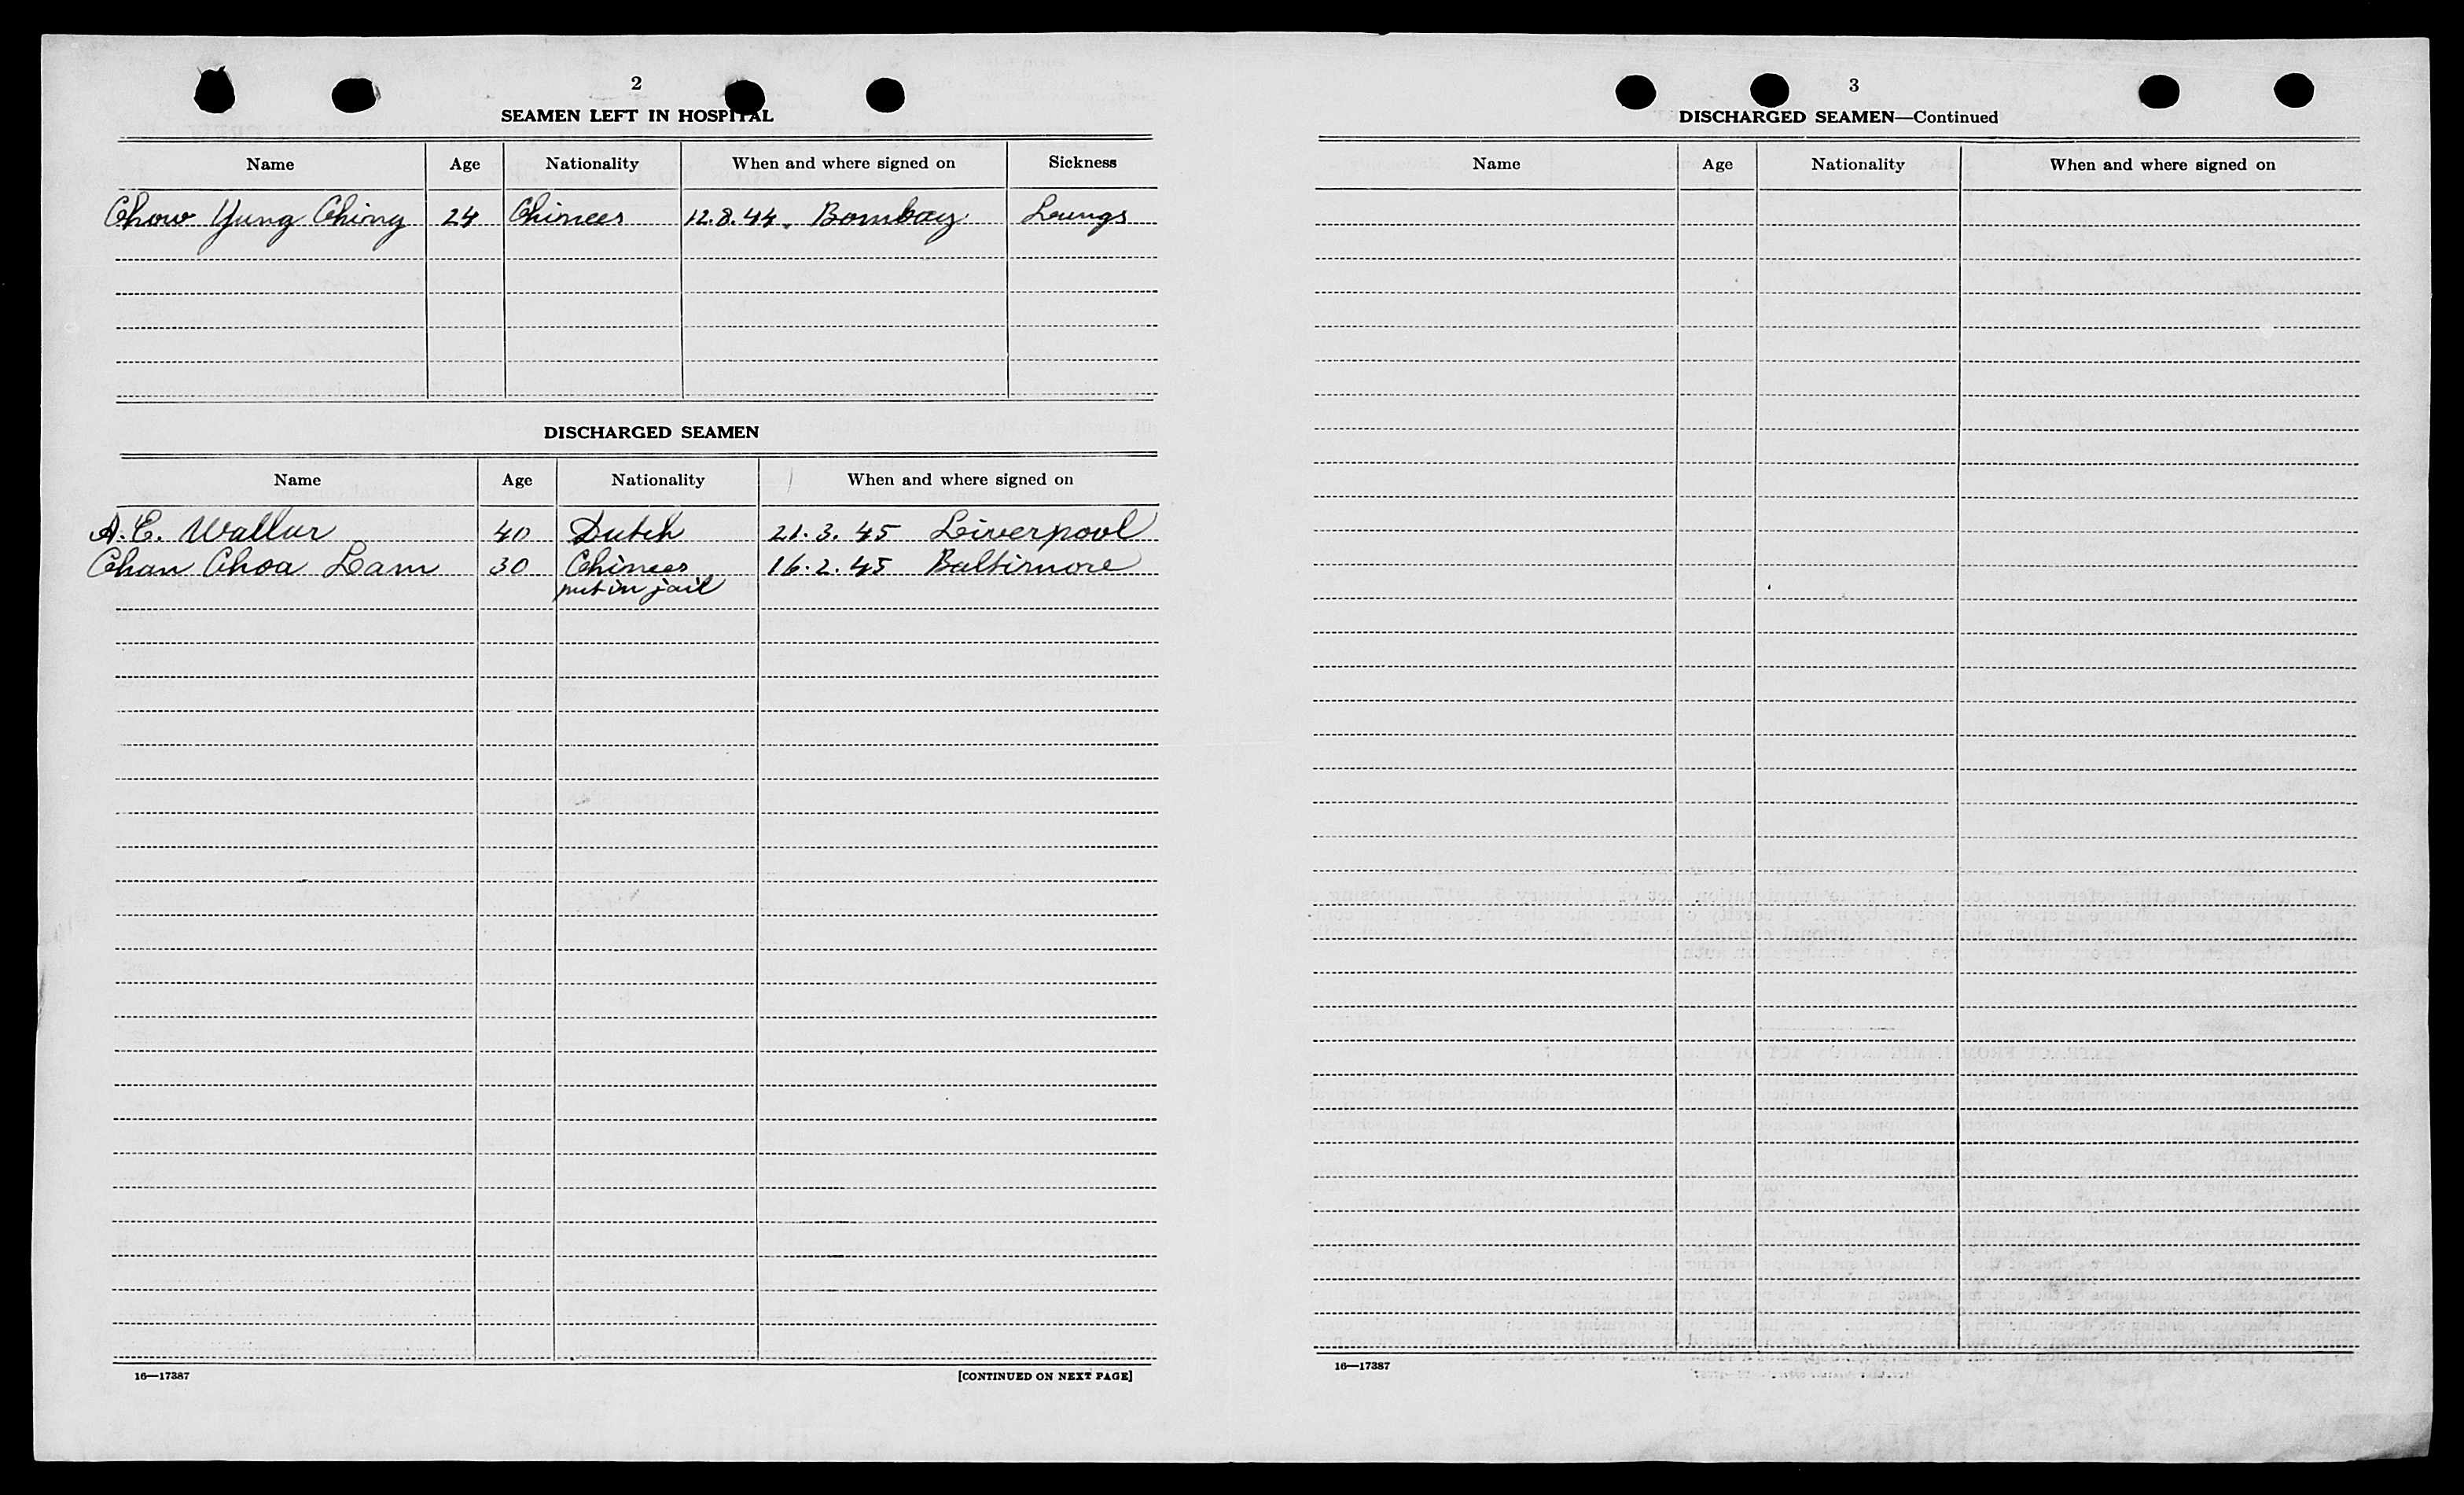 2
SEAMEN LEFT IN HOSPITAL
Name Age Nationality When and where signed on Sickness
Chow Yung Ching 24 Chinees 12.8.44. Bombay Loungs
DISCHARGED SEAMEN
Name Age Nationality When and where signed on
A. C. Wallur 40 Dutch 21.3.45 Liverpool
Chan Choa Lam 30 Chinees 16.2.45 Baltimore
put in jail
16—17387 [CONTINUED ON NEXT PAGE]
3
DISCHARGED SEAMEN—Continued
Name Age Nationality When and where signed on
16—17387